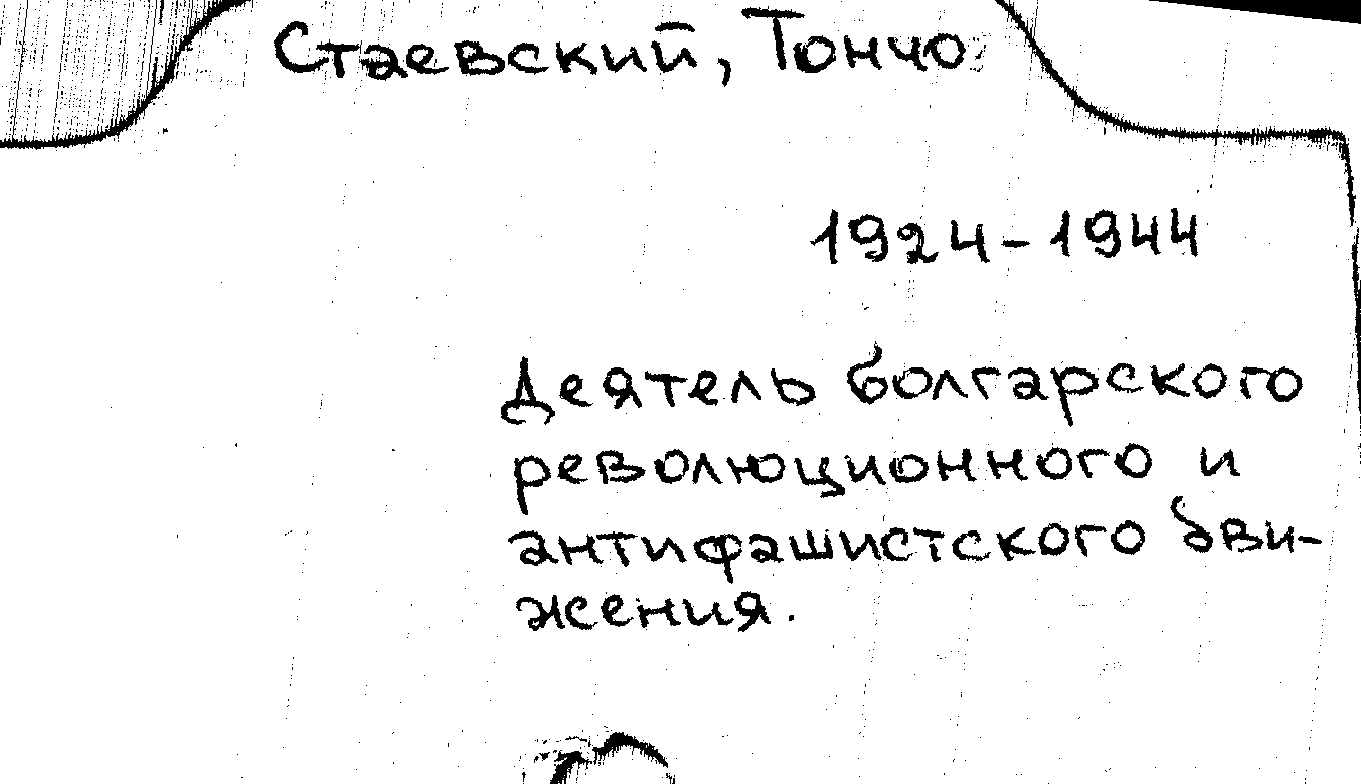 Стаевский, Тончо
1924-1944
Деятель болгарского
революционного и
антифашистского дви-
жения.